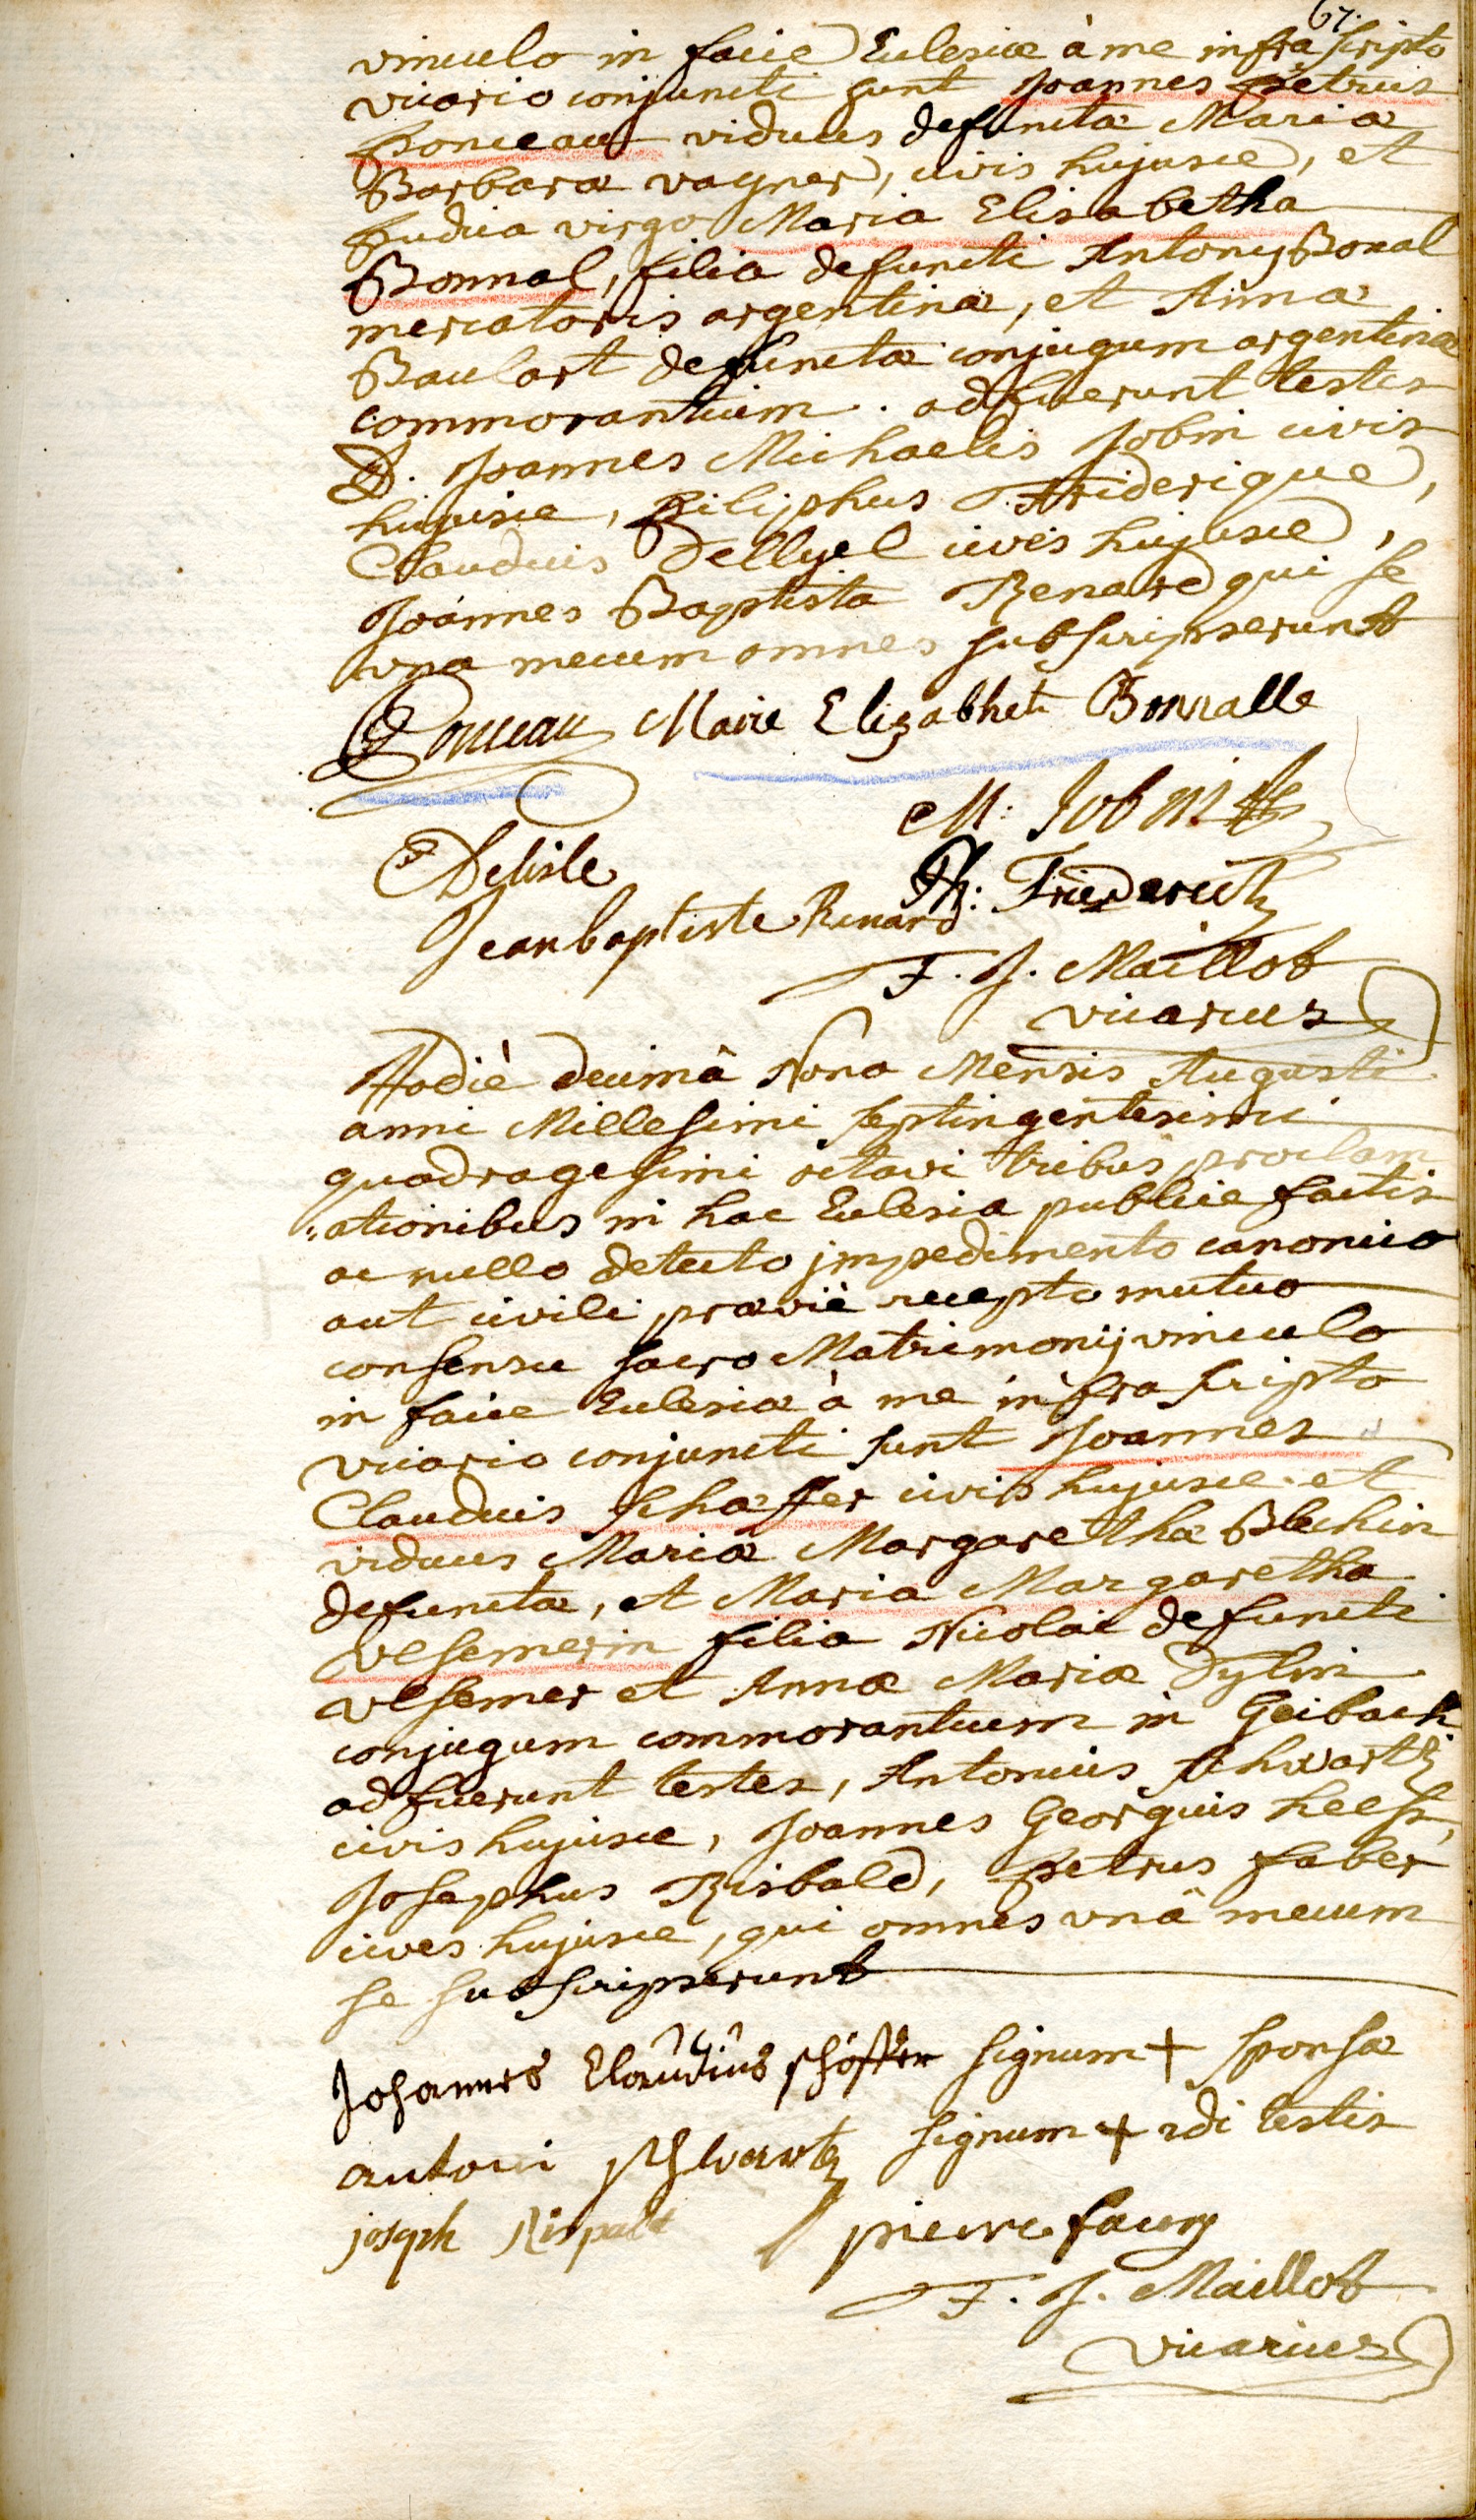 67.
vinculo in facie Eclesiæ à me infra scripto
vicario conjuncti sunt Joannes petrus
ponceau viduus defunctæ Mariæ
Barbaræ vagner, civis hujusce, et
pudica virgo Maria Elisabetha
Bonnal, filia defuncti Antonij Bonal
mercatoris argentinæ, et Annæ
Baulart defunctæ conjugum argentinæ
commorantium. adfuerunt testes
D. Joannes Michaelis Jobin civis
hujusce, piliphus Friderique,
Claudius Dellyel cives hujusce,
Joánnes Baptista Renard qui se
una mecum omnes subscripserunt
Ponceau Marie Elizabhet Bonnalle
M: Jobin
Delisle
Ph: Friederich
Jean baptiste Renard
F. J. Maillot
vicarius
Hodiè decimâ Nona Mensis Augusti
anni Millesimi septingentesimi
quadragesimi octavi tribus proclam
"ationibus in hac Eclesia publice factis
ac nullo detecto jmpedimento canonico
aut civili, præviè recepto mutuo
consensu sacro Matrimonij vinculo
in facie Eclesiæ à me infra scripto
vicario conjuncti sunt Joannes
Claudius schaffer civis hujusce et
viduus Mariæ Margarethæ Blechin
defunctæ, et Maria Margaretha
Vesemerin filia Nicolai defuncti
vesemer et Annæ Mariæ Dylin
conjugum commorantium in Geibach
adfuerunt testes, Antonius schwartz
civis hujusce, Joannes Georgius heess,
Josephus Risbald, petrus faber
cives hujusce, qui omnes unâ mecum
se subscripserunt
Johannes Claudius schöffer signum + sponsæ
antoni schwartz signum + 2di testis
joseph Rispalt pierre faury
F. J. Maillot
vicarius